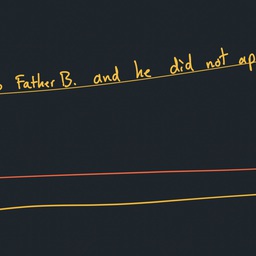 Father B. and he did not